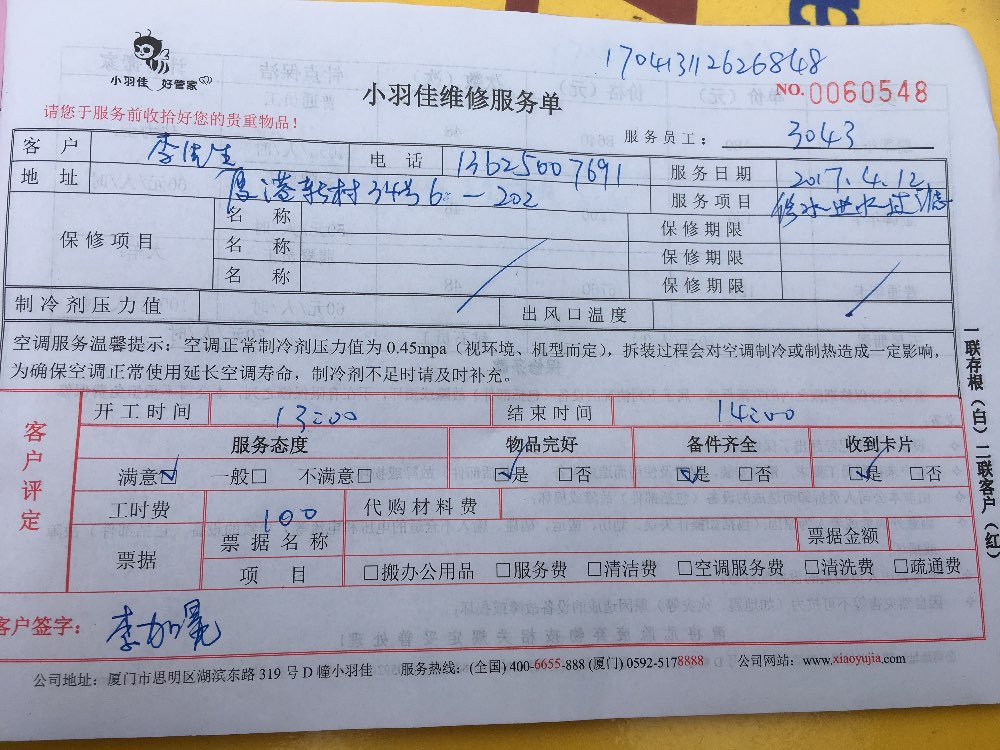 小羽佳 好管家
170413112626848
小羽佳维修服务单
NO.0060548
请您于服务前收拾好您的贵重物品！
服务员工： 3043
客户 李先生 电话 13625007691 服务日期 2017.4.12
地址 厦港新村34号6-202 服务项目 修水
保修项目 名称 保修期限
名称 保修期限
名称 保修期限
制冷剂压力值 出风口温度
空调服务温馨提示：空调正常制冷剂压力值为0.45mpa（视环境、机型而定），拆装过程会对空调制冷或制热造成一定影响，
为确保空调正常使用延长空调寿命，制冷剂不足时请及时补充。
客户评定
开工时间 13:00 结束时间 14:00
服务态度 物品完好 备件齐全 收到卡片
满意☑ 一般□ 不满意□ ☑是 □否 ☑是 □否 ☑是 □否
工时费 100 代购材料费
票据 票据名称 票据金额
项目 □搬办公用品 □服务费 □清洁费 □空调服务费 □清洗费 □疏通费
客户签字： 李加晃
一联存根（白）二联客户（红）
公司地址：厦门市思明区湖滨东路319号D幢小羽佳 服务热线：(全国) 400-6655-888 (厦门) 0592-5178888 公司网站：www.xiaoyujia.com